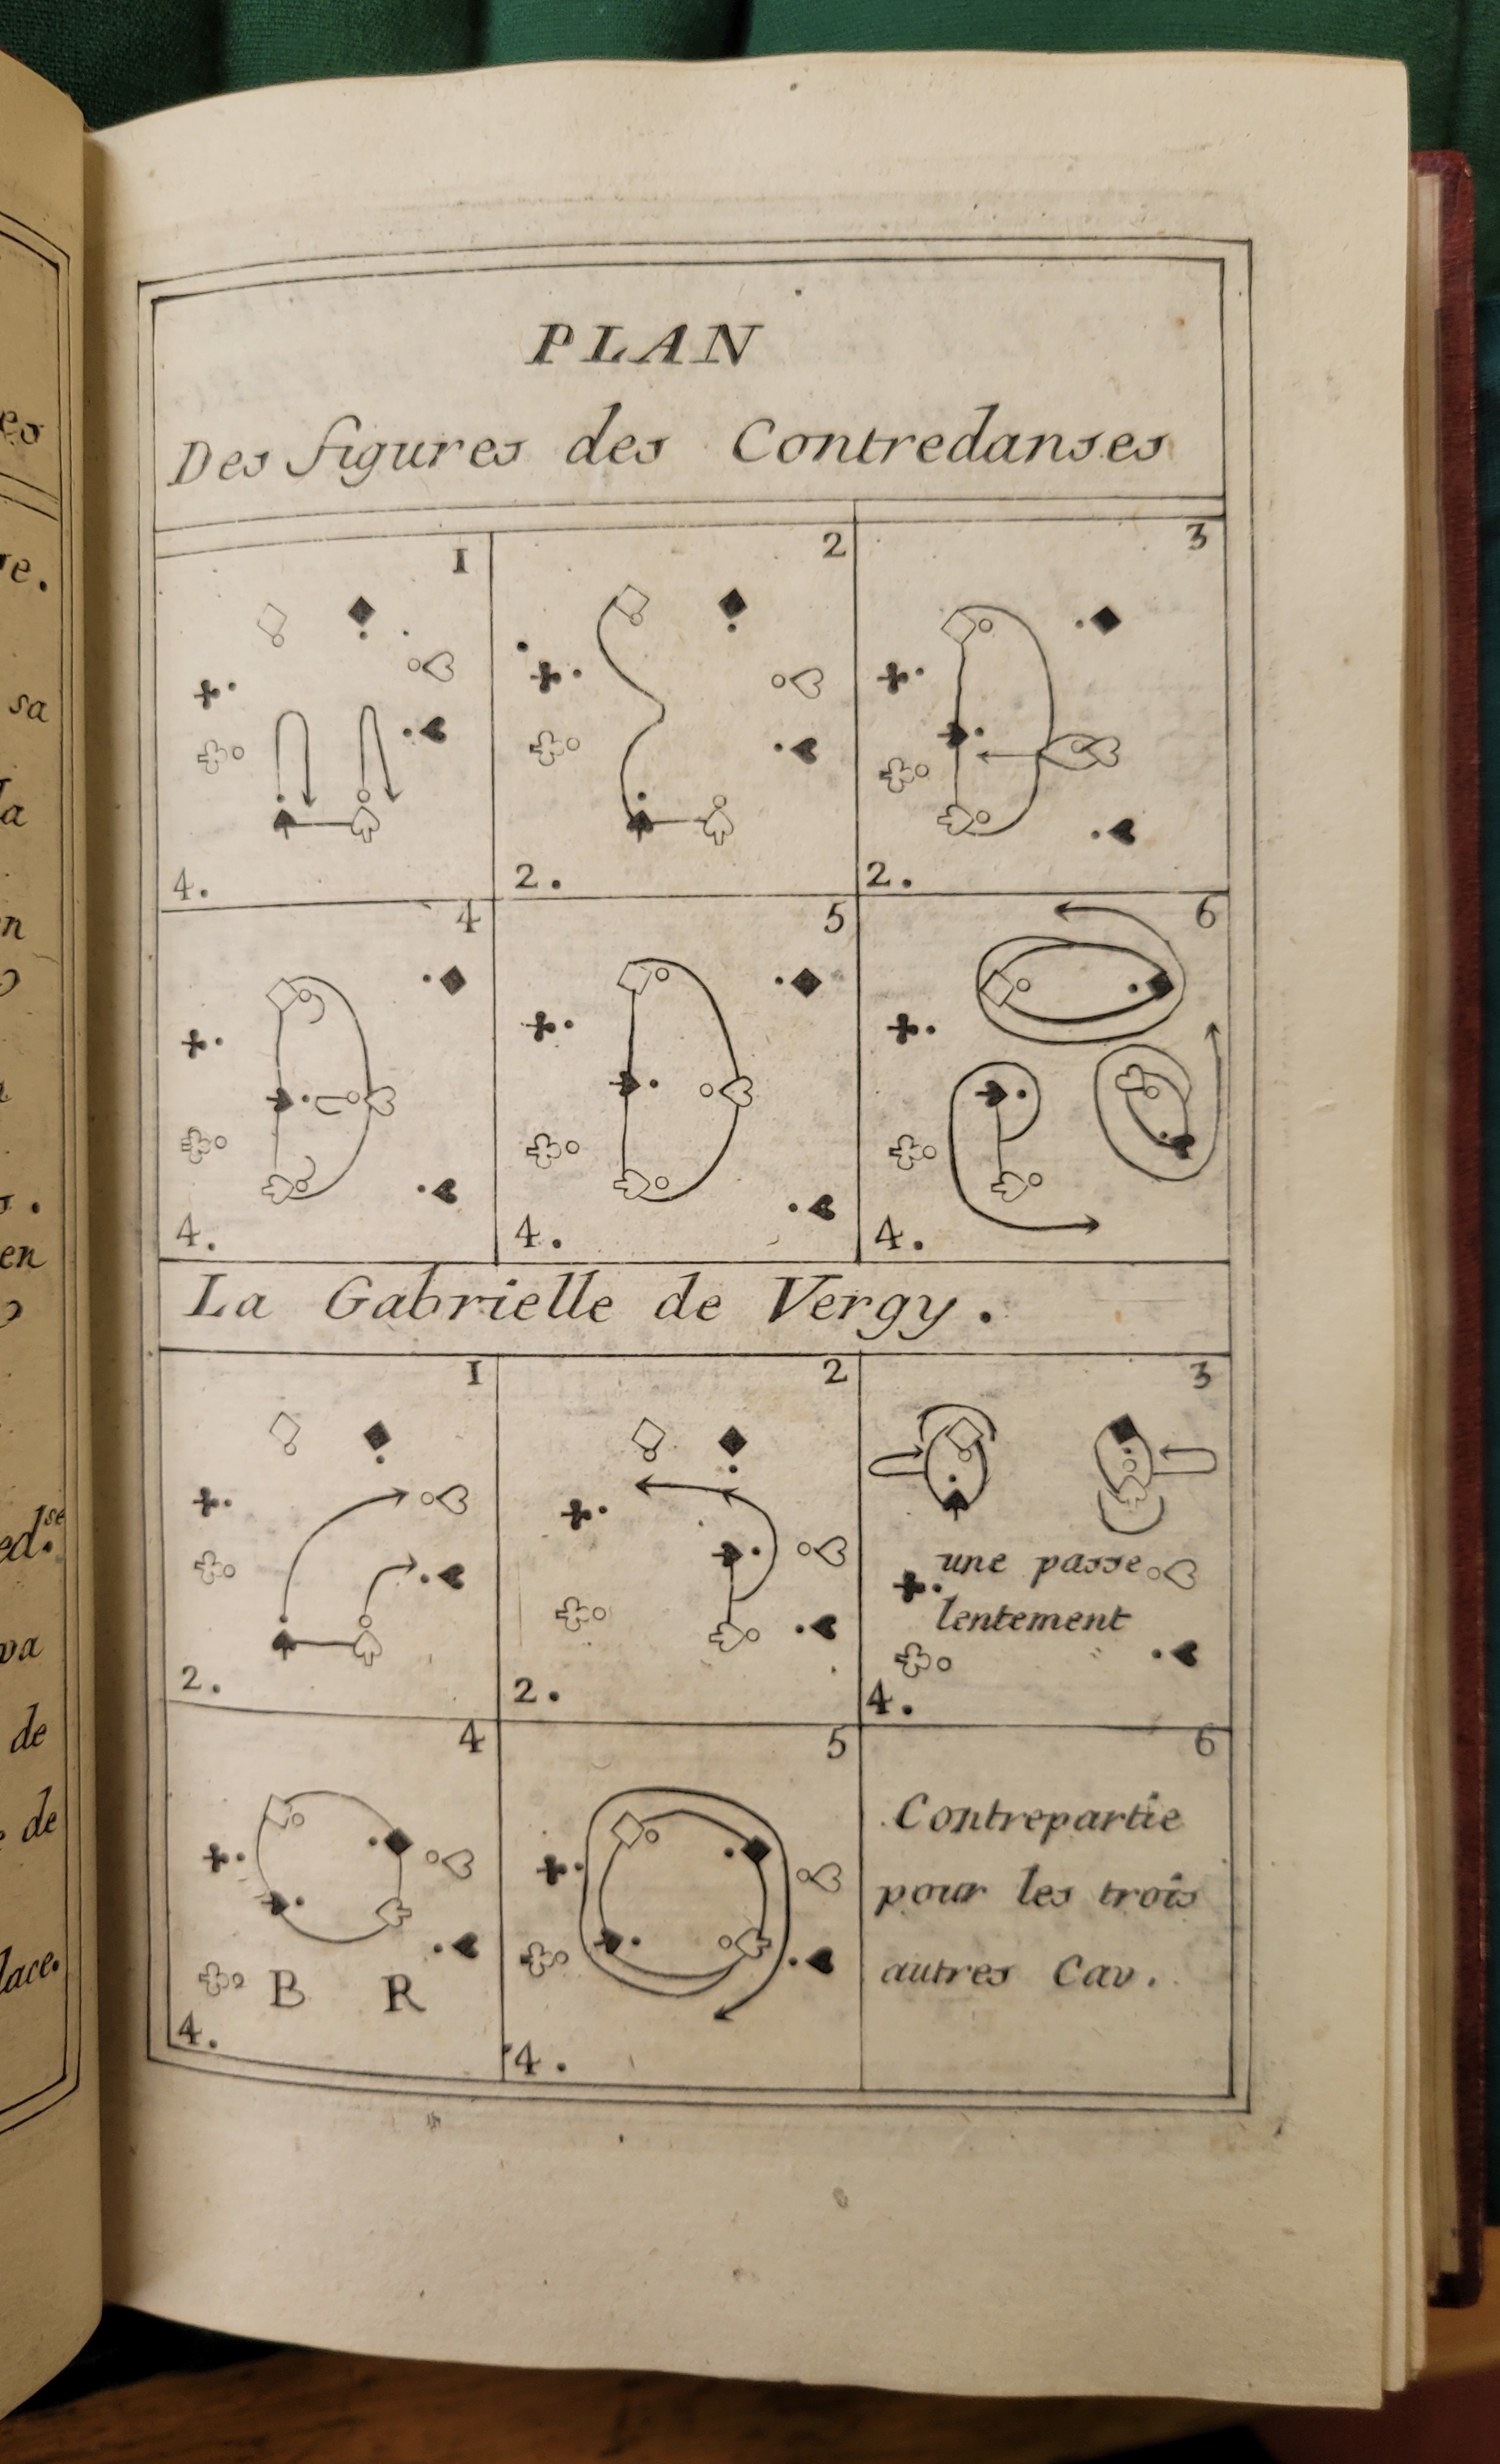 PLAN
Des figures des Contredanses
1
2
3
4.
2.
2.
4
5
6
4.
4.
4.
La Gabrielle de Vergy.
1
2
3
une passe
lentement
2.
2.
4.
4
5
6
Contrepartie
pour les trois
autres Cav.
B R
4.
4.
sa
en
en
de
de